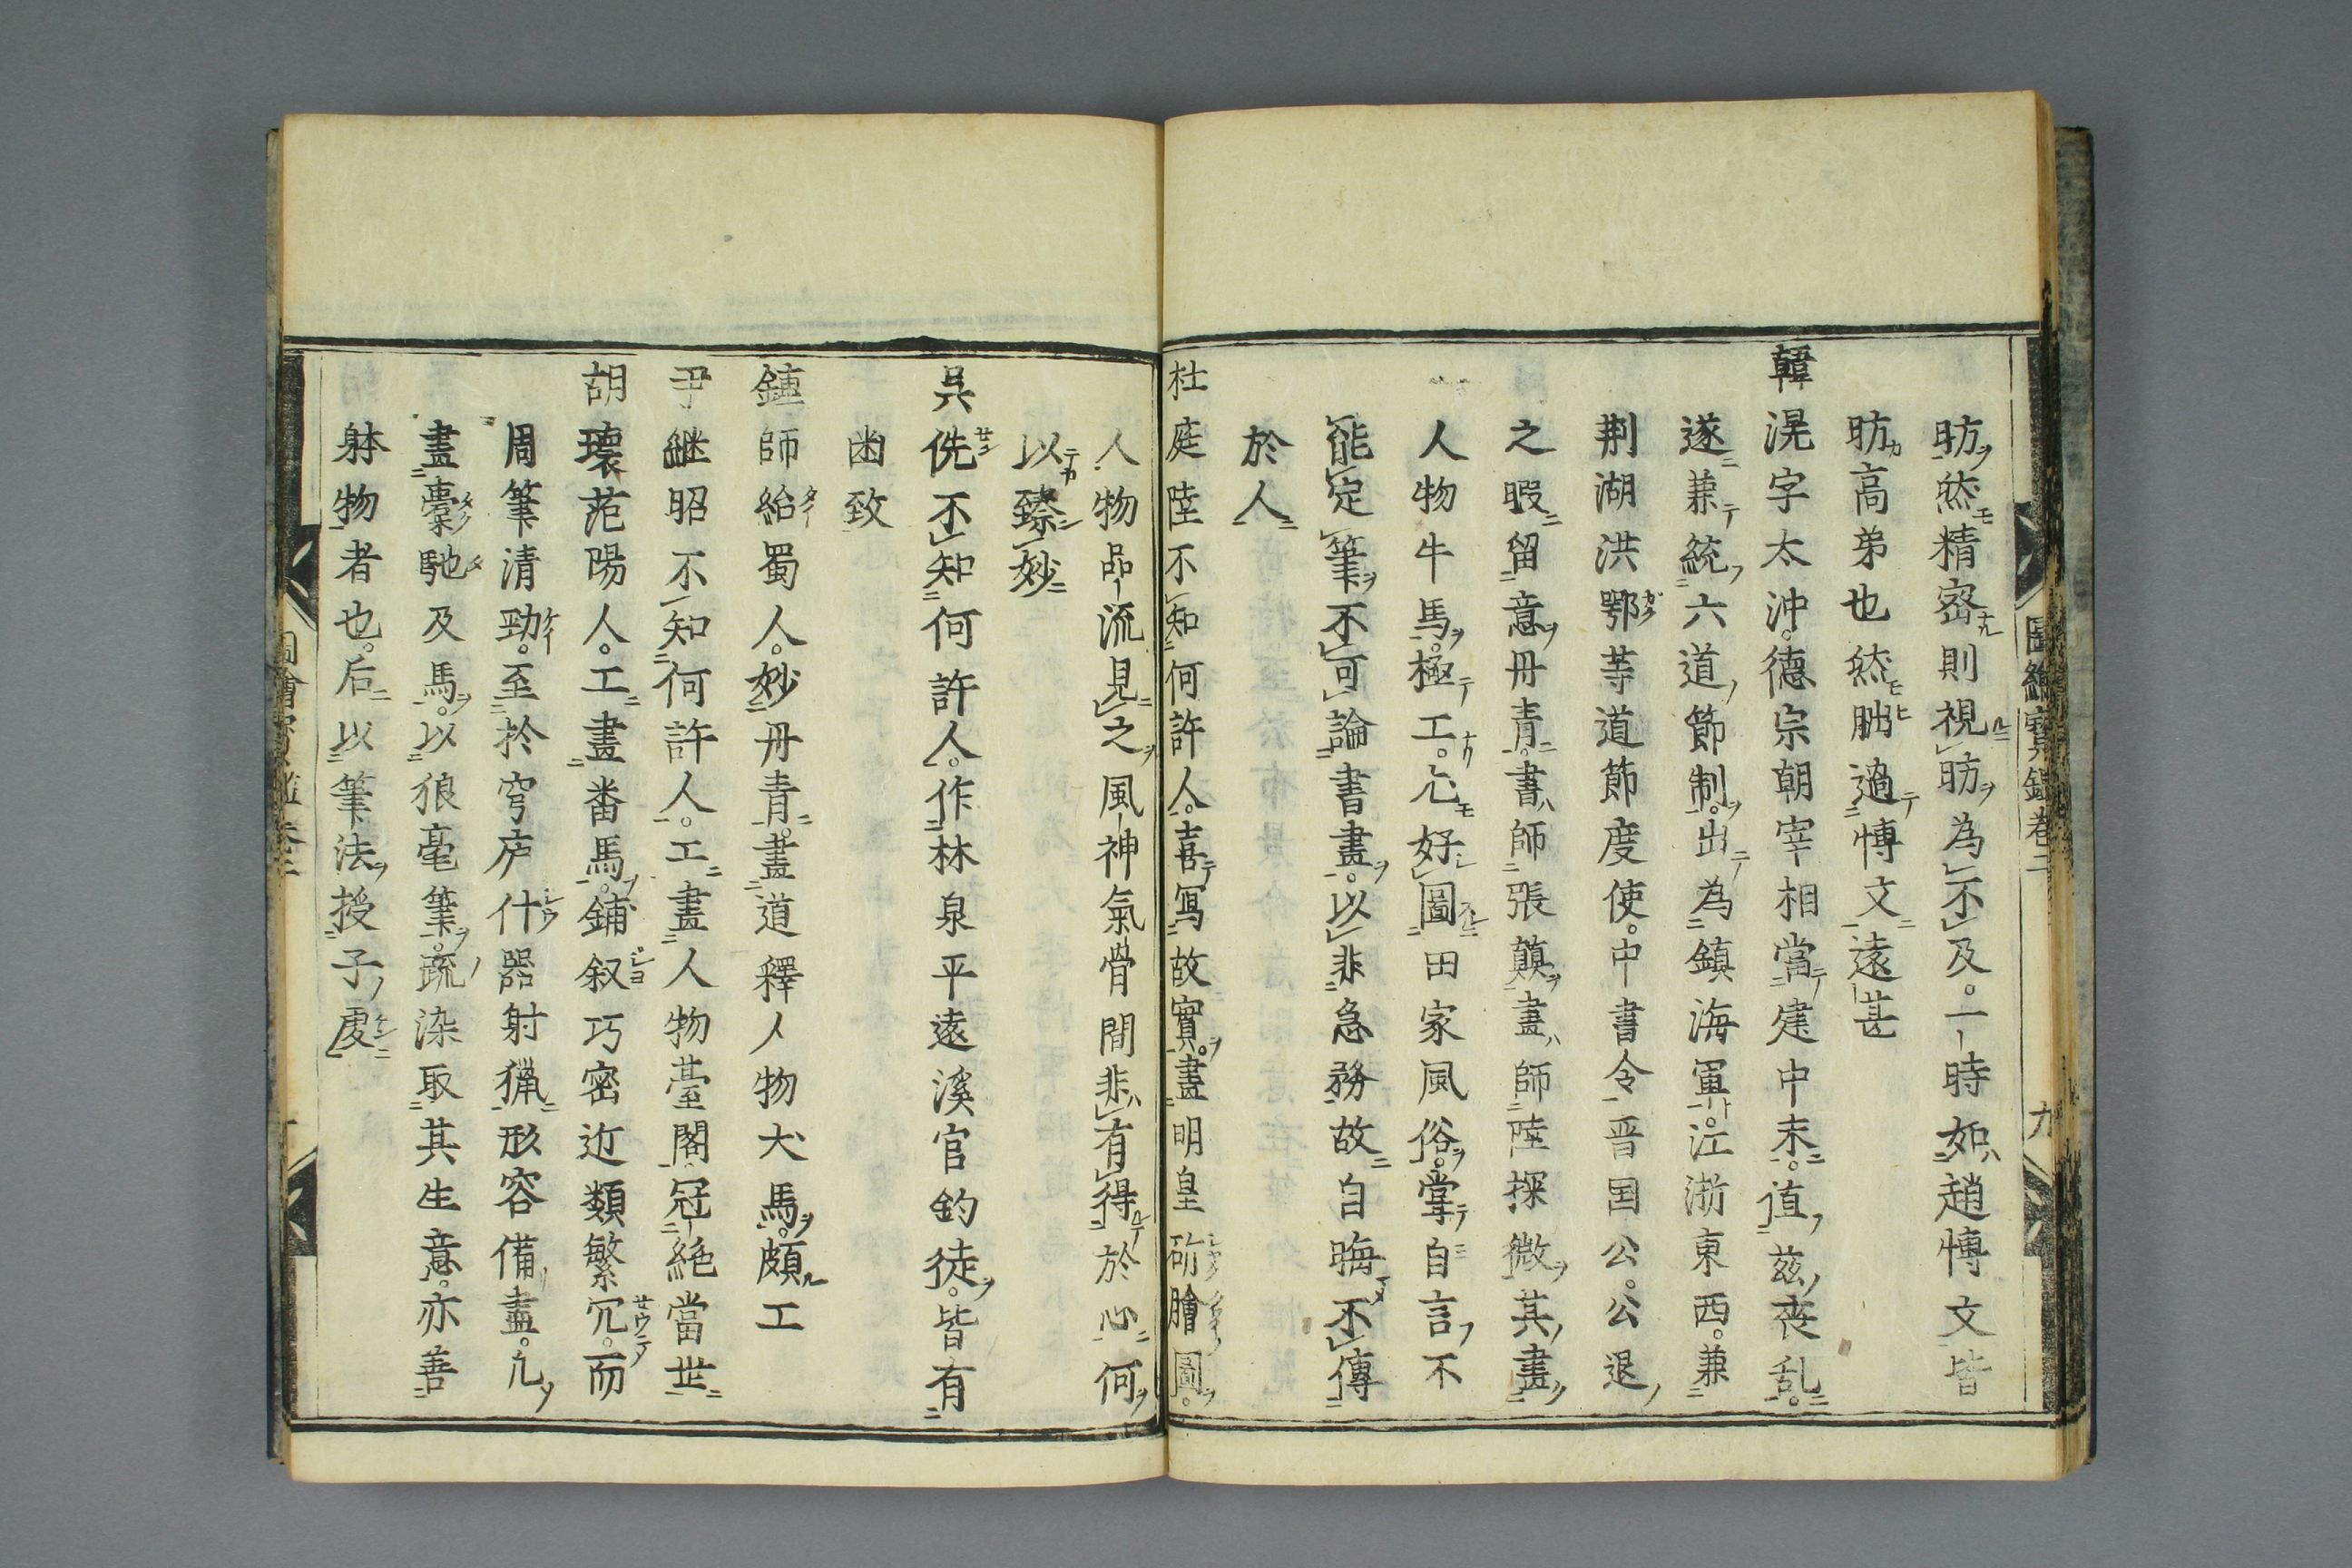 圖繪寶鑑卷二
九
昉然精密則視昉為不及一時如趙博文皆
昉高弟也然朏過博文遠甚
韓滉字太沖德宗朝宰相當建中末值茲喪乱
遂兼統六道節制出為鎮海軍江浙東西兼
荆湖洪鄂等道節度使中書令晋国公公退
之暇留意丹青書師張顛畫師陸探微其畫
人物牛馬極工尤好圖田家風俗掌自言不
能定筆不可論書畫以非急務故自晦不傳
於人
杜庭陸不知何許人喜寫故實畫明皇斫膾圖
人物品流見之風神氣骨間非有得於心何
以臻妙
吳侁不知何許人作林泉平遠溪官釣徒皆有
幽致
鍾師紿蜀人妙丹青畫道釋人物犬馬頗工
尹継昭不知何許人工畫人物臺閣冠絶當世
胡瓌范陽人工畫番馬鋪叙巧密近類繁冗而
周筆清勁至於穹庐什器射獵形容備盡凢
畫橐馳及馬以狼毫筆疏染取其生意亦善
躰物者也后以筆法授子虔
圖繪寶鑑卷二